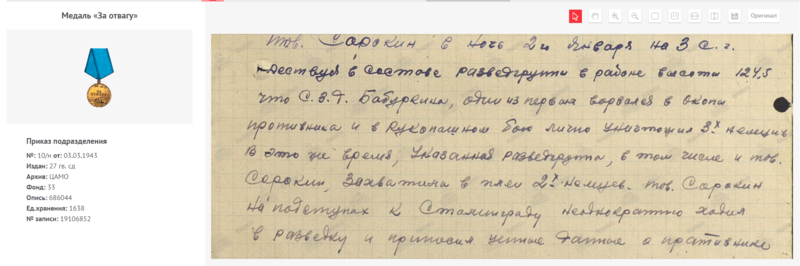 Медаль «За отвагу»
Оригинал
Приказ подразделения
№: 10/н от: 03.03.1943
Издан: 27 гв. сд
Архив: ЦАМО
Фонд: 33
Опись: 686044
Ед.хранения: 1638
№ записи: 19106852
тов. Сорокин в ночь 2го января на 3 с. г.
действуя в составе разведгруппы в районе высоты 124.5
что С.В.Д. Бабуркина, один из первых ворвался в окопы
противника и в рукопашном бою лично уничтожил 3х немцев
В это же время, указанная разведгруппа, в том числе и тов.
Сорокин, захватила в плен 2х немцев. тов. Сорокин
на подступах к Сталинграду неоднократно ходил
в разведку и приносил ценные данные о противнике